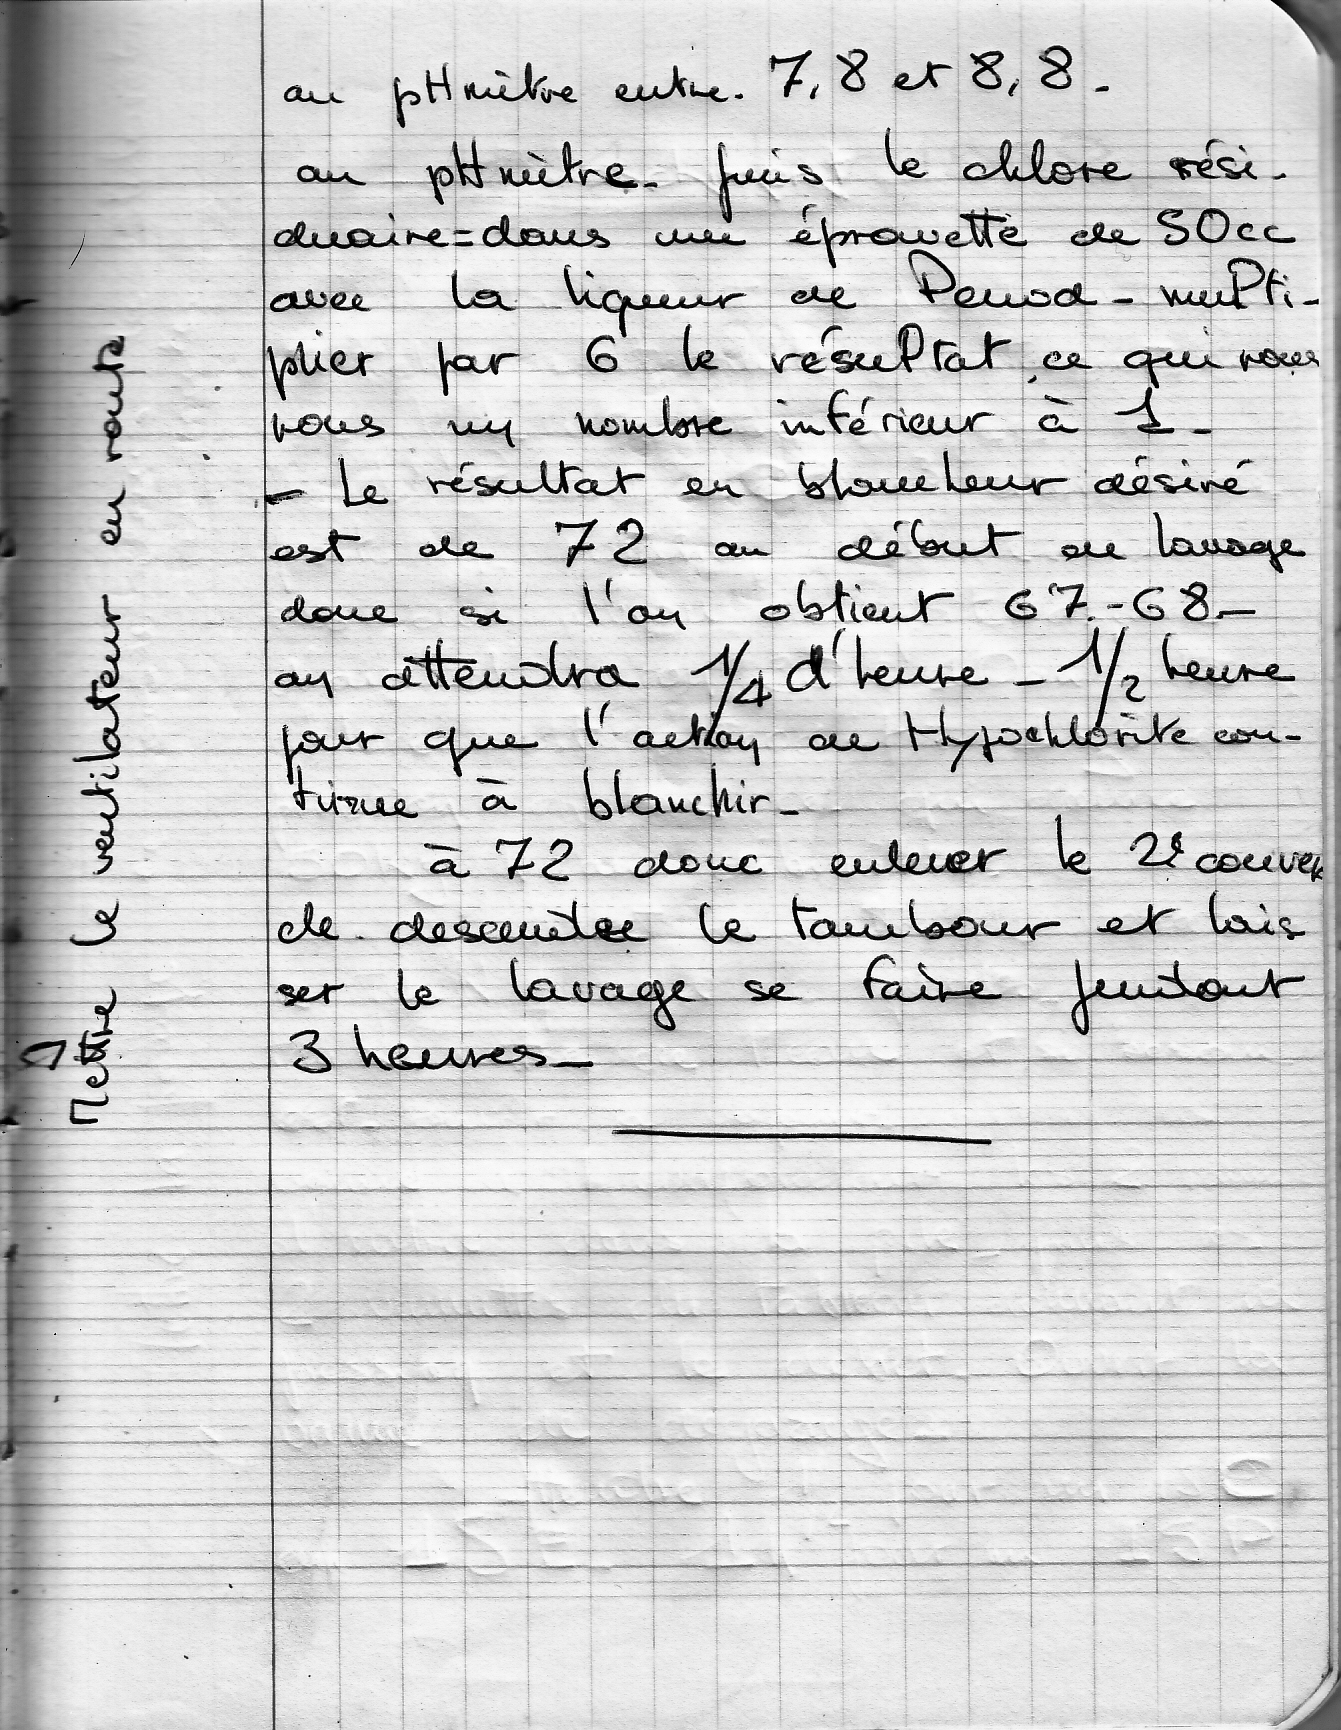 au pHmètre entre. 7,8 et 8,8-
au pHmètre- puis le chlore rési-
duaire=dans une éprouvette de 50cc
avec la liqueur de Penod- multi-
plier par 6 le résultat, ce qui nous
nous un nombre inférieur à 1-
- Le résultat en blancheur désiré
est de 72 au début de lavage
donc si l'on obtient 67-68-
on attendra 1/4 d'heure - 1/2 heure
pour que l'action de Hypochlorite con-
tinue à blanchir-
à 72 donc enlever le 2e couver
cle descendre le tambour et lais
ser le lavage se faire pendant
3 heures-
Mettre le ventilateur en route